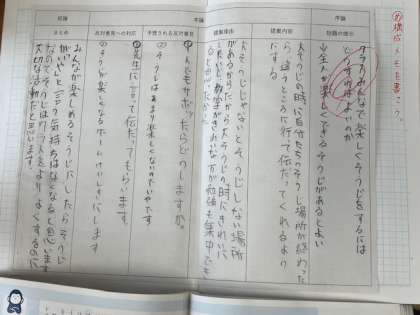 構成メモを書こう。
序論
本論
結論
話題の提示
提案内容
提案理由
予想される反対意見
反対意見への対応
まとめ
クラスみんなで楽しくそうじをするには
どうすればよいのか
全員が楽しくできるそうじがあるとよい
大そうじの時に自分たちのそうじ場所が終わった
ら違うところに行って伝だってくれるよう
にする
大そうじじゃないとそうじしない場所
があるからだから大そうじの時にきれいに
したい。教室がきれいな方が勉強も集中でき
①もしサボったらどのしますか。
②そうじはあまり楽しくないのでいやです
①先生に言って伝だってもらいます。
②そうじが楽しくなるゲームにします
みんなが楽しめるそうじにしたらそうじ
という気持ちはなくなると思います
なのでそうじはクラスをよりよくするのに
大切な活動だと思います